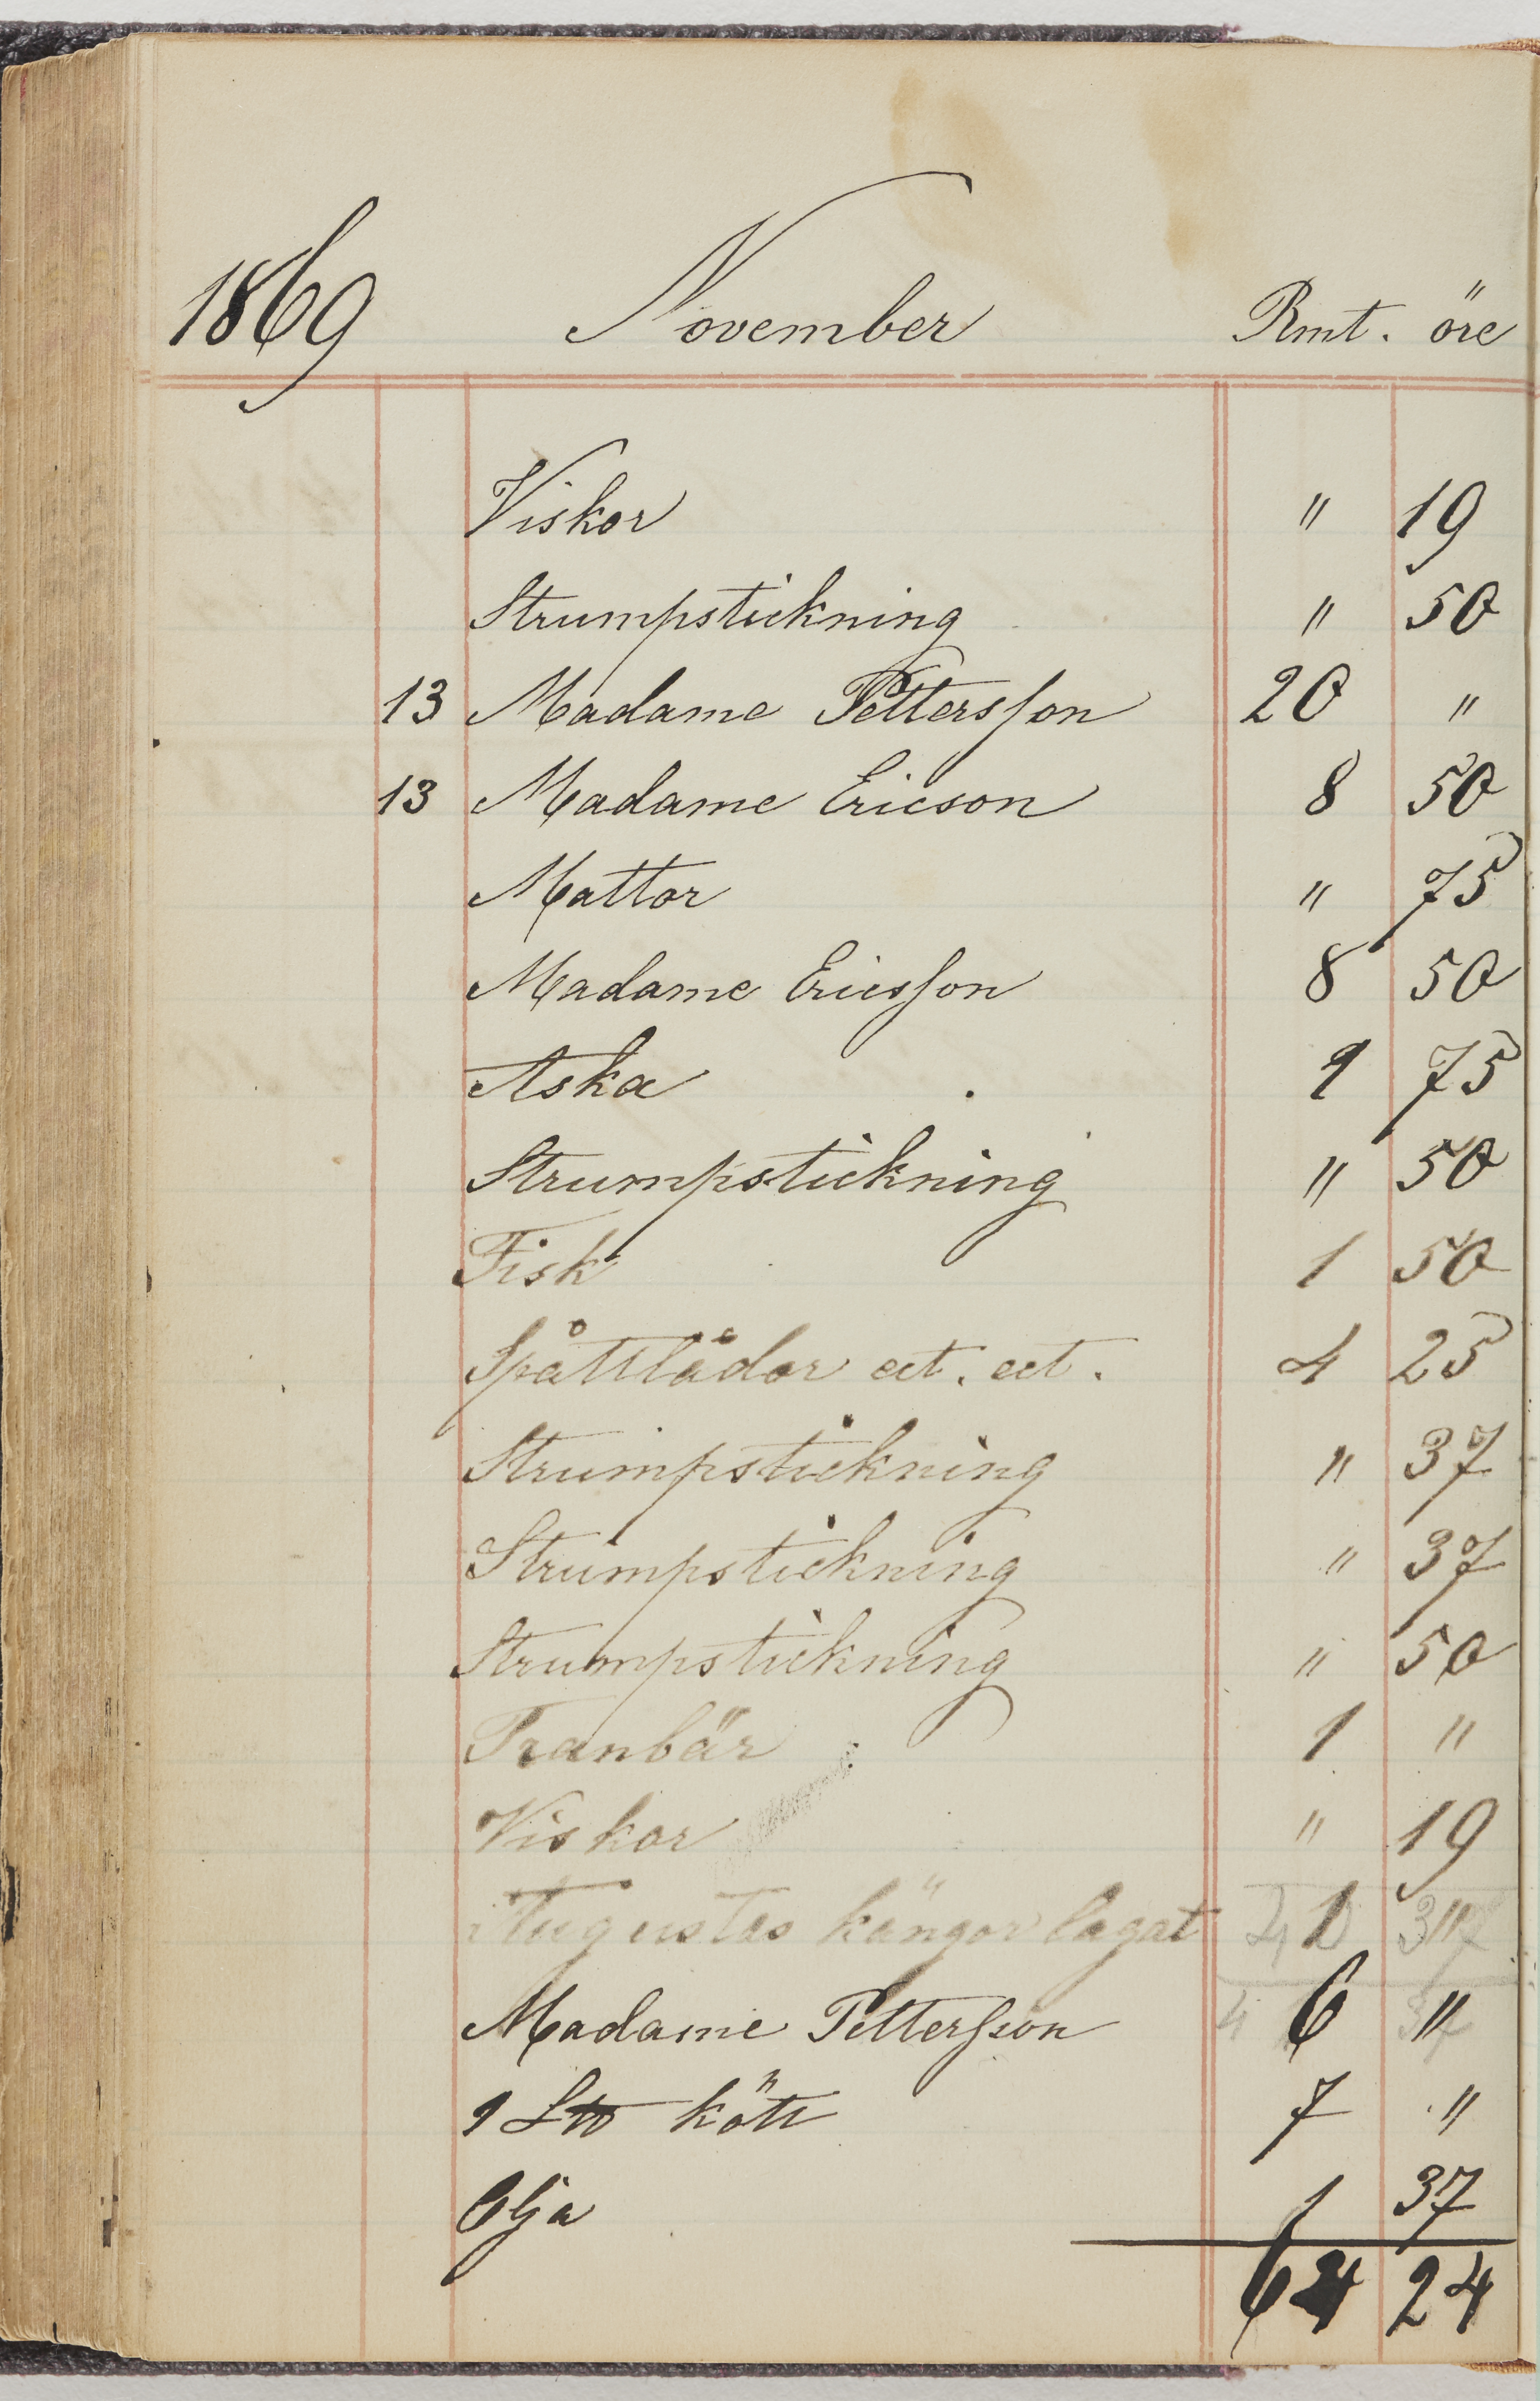 1869 November Rmt. öre
Viskor " 19
Strumpstickning " 50
13 Madame Pettersson 20 "
13 Madame Ericson 8 50
Mattor " 75
Madame Ericsson 8 50
Aska 1 75
Strumpstickning " 50
Fisk 1 50
Spåttlådor cct. cct. 4 25
Strumpstickning " 37
Strumpstickning " 37
Strumpstickning " 50
Tranbär 1 "
Viskor " 19
Augustas kängor lagat 1 "
Madame Pettersson 6 "
1 L kött 7 "
Olja 1 37
64 24